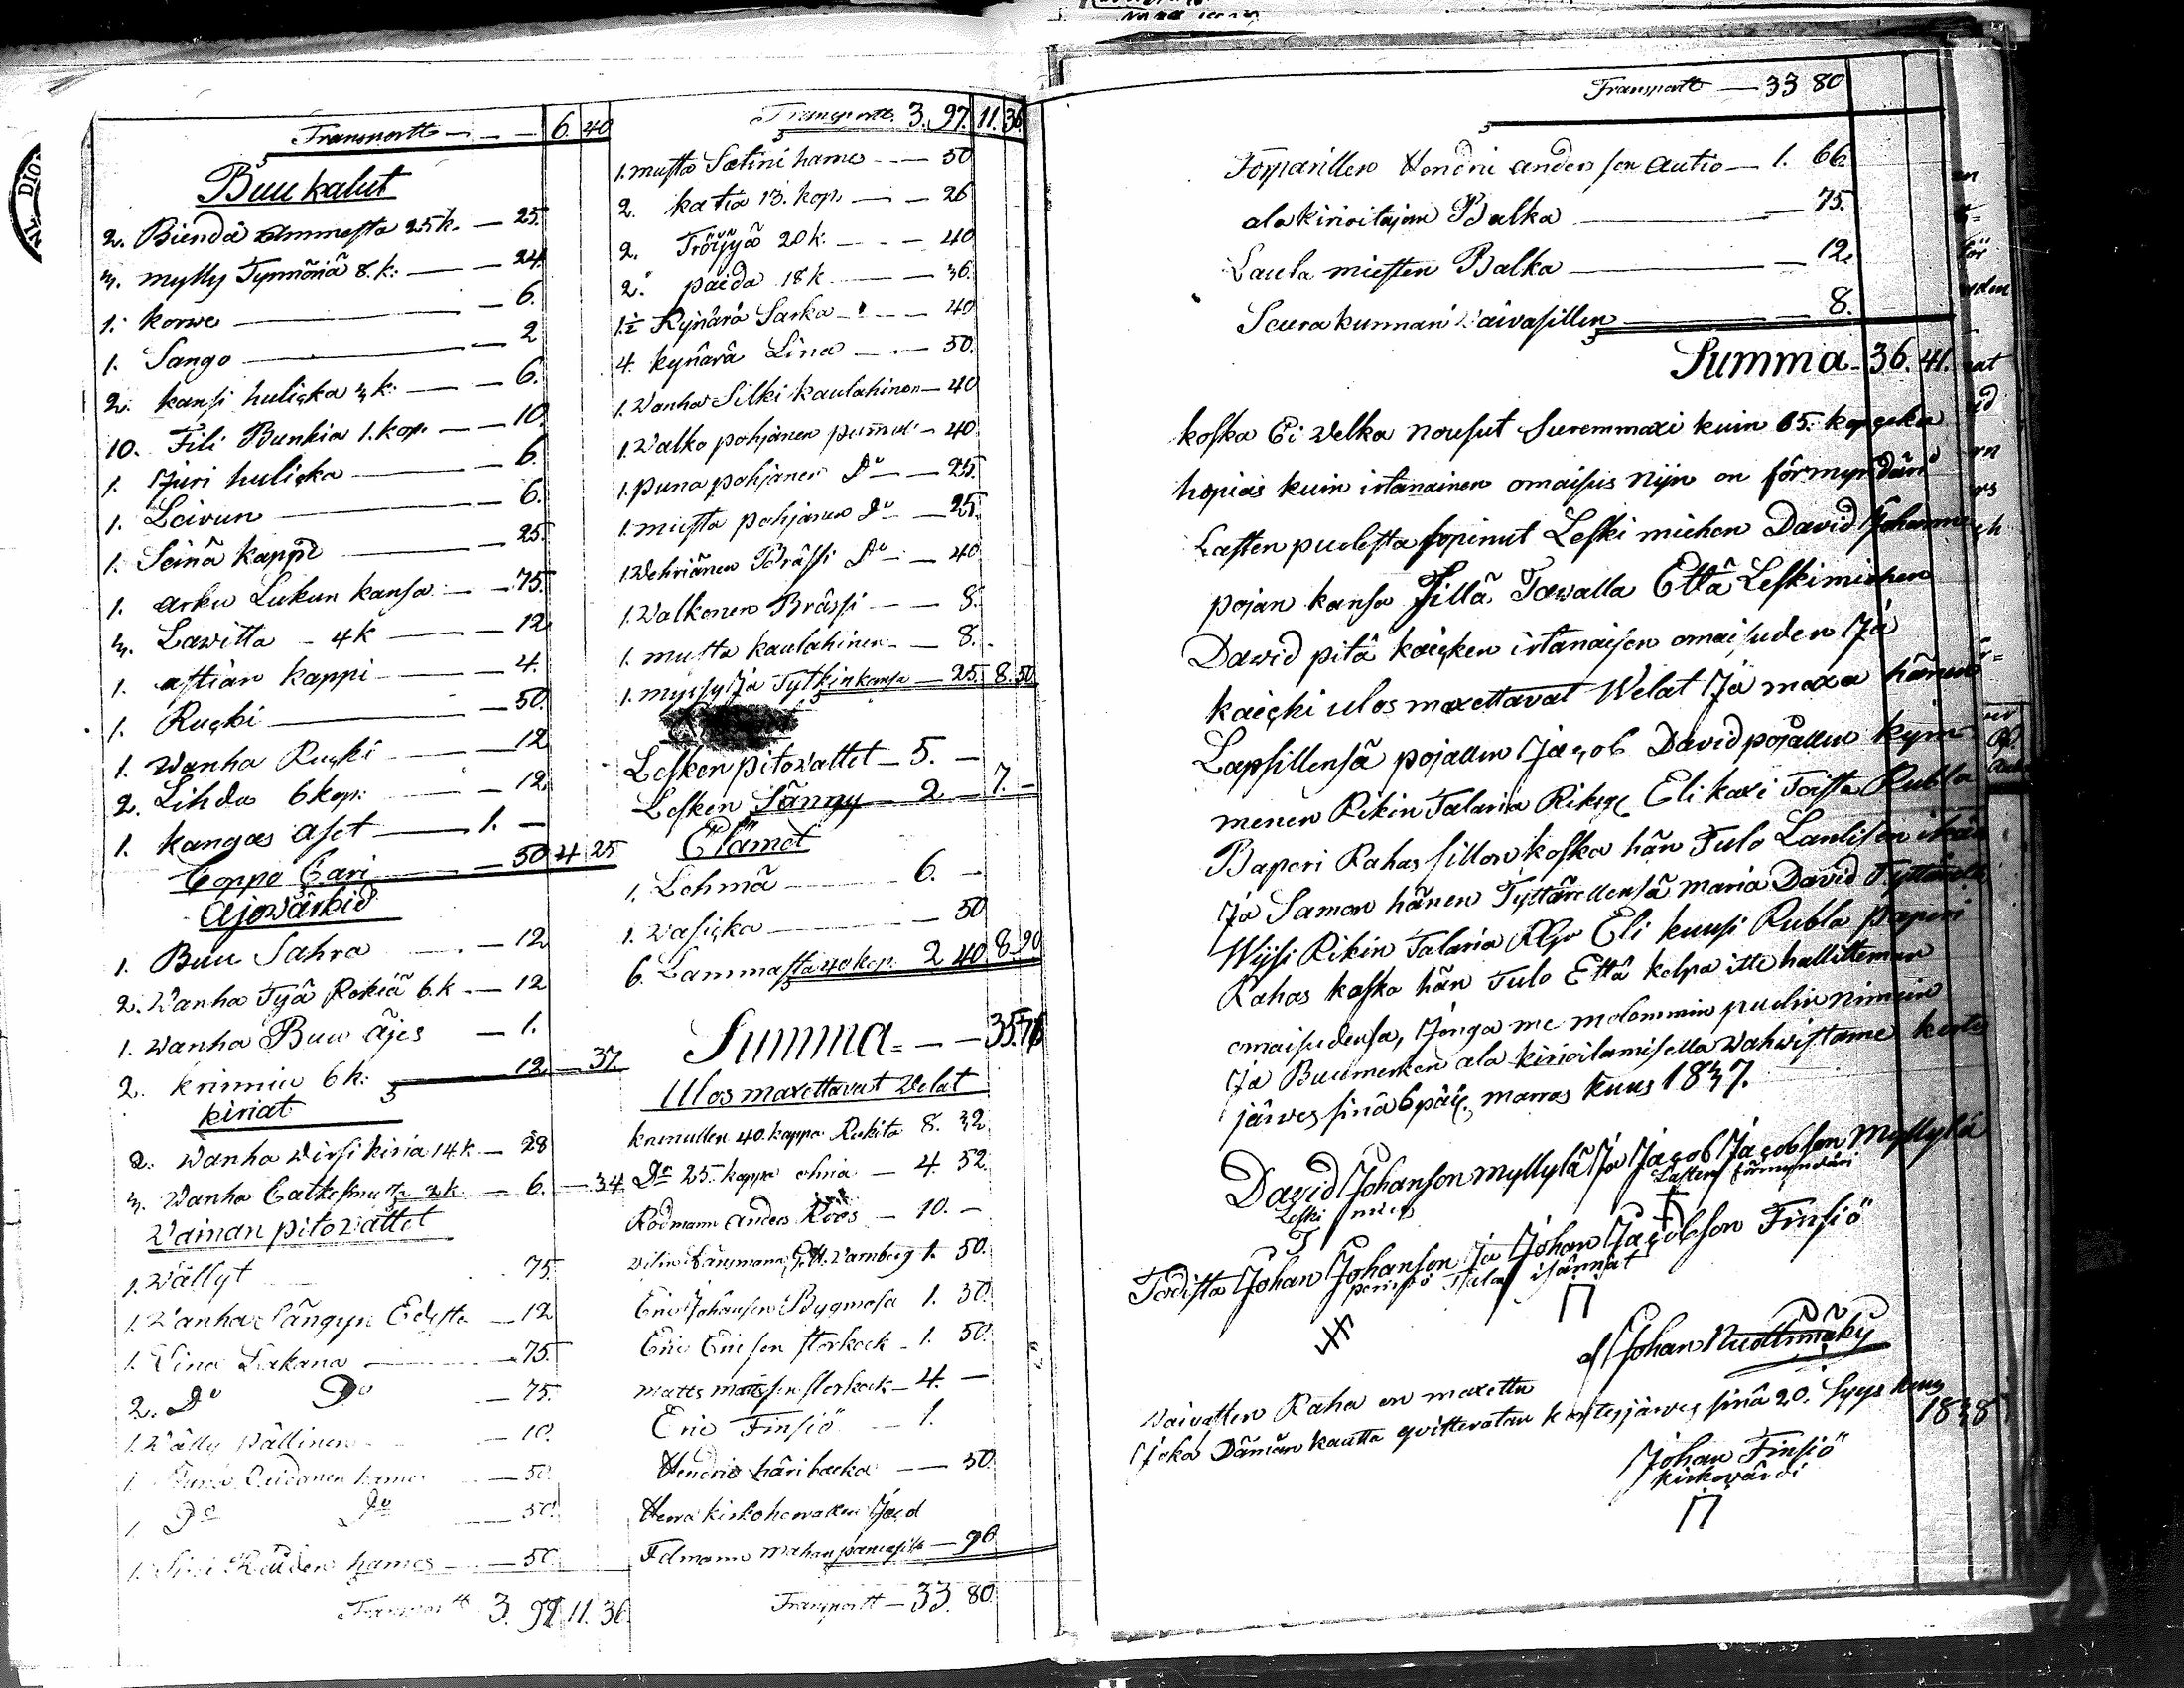 Transportt — 6. 40
Buu kalut
2. Biendä ammesta 25 k. — 25.
3. mylly Tynnöriä 8. k: — 24.
1. korwo — 6.
1. Sango — 2
2. kansi huliçka 3 k: — 6.
10. Fili Bunkia 1. kop. — 10.
1. Juri huliçka — 6.
1. Leivun — 6.
1. Seinä kappi — 25.
1. arku Lukun kansa — 75.
3. Lawitta - 4 k — 12
1. astian kappi — 4.
1. Ruçki — 50
1. Wanha Ruçki — 12
2. Lihda 6 kop: — 12
1. kangas aset — 1. —
Coppo Cari — 50 4 25
Ajowärkid
1. Buu Sahra — 12
2. Wanha Tyä Rekiä 6. k — 12
1. Wanha Buu äjes — 1.
2. krinnin 6 k: — 12 — 37.
kiriat
2. Wanha Wirsi kiria 14 k — 28
3. Wanha 2 k — 6. — 34
Waiman pito wattet
1. Wällyt 75.
1. Wanha Sängyn — 12
1. Lina Lakana — 75.
2. Do Do — 75.
1. Wälly pällinen — 10.
1. hames — 50
1. Do Do — 50.
1. Sini hames — 50.
Transportt 3. 97 11. 36
Transportt 3. 97. 11. 36
1. musta Satini hame — 50
2. katia 13. kop. — 26
2. Tröijyä 20 k: — 40
2. paida 18 k — 36.
1½ Kynärä Sarka — 40
4. kynärä Lina — 50.
1. Wanha Silki kaulahinen — 40
1. Walko pohjanen — 40
1. puna pohjanen Do — 25.
1. musta pohjanen Do — 25.
1. Wehriänen Brässi Do — 40
1. Walkonen Brässi — 8.
1. musta kaulahinen — 8.
1. myssy Ja Tytkin kansa — 25. 8. 50
Lesken pito wattet — 5. —
Lesken Sänny — 2 — 7. —
Elämet
1. Lehmä — 6. —
1. Wasiçka — 50
6. Lammasta 40 kop. 2 40 8. 90
Summa = — 35. 76
Ulos maxettavat Velat
knenullen 40. kappa Rukita 8. 32
Do 25. kappa ohria — 4. 52.
Rodmann anders Röös — 10. —
Wamberg 1. 50.
Eric Johansen Bygmesa 1. 30.
Eric Ericsen storkack - 1. 50.
matts mattssen storkack — 4. —
Eric Finsiö — 1.
Hendric häribacka — 50.
Herra kirkoherrallen Ja
— 96
Transportt — 33. 80
Transportt — 33 80
Hendric andersson autio — 1. 66.
ala kirioitajan Palka — 75.
Laula miesten Balka — 12.
Seurakunnan Vaivasillen — 8.
Summa — 36. 41.
koska Ei Velka nousut Suremmaxi kuin 65. kopeka
hopias kuin irtanainen omaisus nijn on förmyndäri
Lasten puolesta sopinut Leski miehen David Johannen
pojan kansa Sillä Tawalla Että Leskimiehen
David pitä kaiçken irtanaisen omaisuden Ja
kaiçki ulos maxettavat Welat Ja maxa hänen
Lapsillensä pojallen Jacob David pojallen kym-
menen Rikin Talaria Riksg Eli kaxi Toista Rubla
Baperi Rahas sillon koska hän Tulo Laulisen ikän
Ja Samon hänen Tyttärellensä maria David Tyttärelle
Wijsi Rikin Talaria RGs Eli kuusi Rubla Paperi
Rahas koska hän Tulo Että kelpa itte hallitteman
omaisudensa, Jonga me molommin puolin nimein
Ja Buumerken ala kirioitamisella Wahwistame Korte
järves sinä 6 päiv. marras kuus 1837.
David Johanson Myllylä Ja Jacob Jacobson Myllylä
Leski mies Lasten förmyndäri
Todista Johan Johanson Ja Johan Jacobson Finsiö
isännät
Johan Nuottimäky
Vaivasten Raha on maxettu
Joka Dämän kautta qvitteratan kortesjärves sinä 20. Syys kuus
1838
Johan Finsiö
kirkovärdi